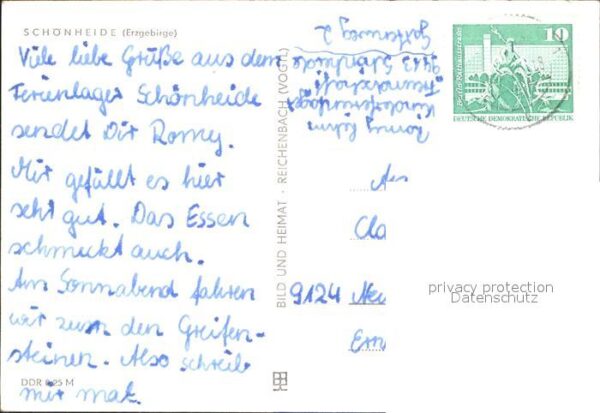 SCHÖNHEIDE (Erzgebirge)
Viele liebe Grüße aus dem
Ferienlager Schönheide
sendet Dir Romy.
Mir gefällt es hier
sehr gut. Das Essen
schmeckt auch.
Am Sonnabend fahren
wir zum den Greifen-
steinen. Also schreib
mir mal.
DDR 0,25 M
BILD UND HEIMAT · REICHENBACH (VOGTL)
Romy
9413 Schönheide
2
10
DEUTSCHE DEMOKRATISCHE REPUBLIK
An
Cla
9124 Neu
Ern
privacy protection
Datenschutz